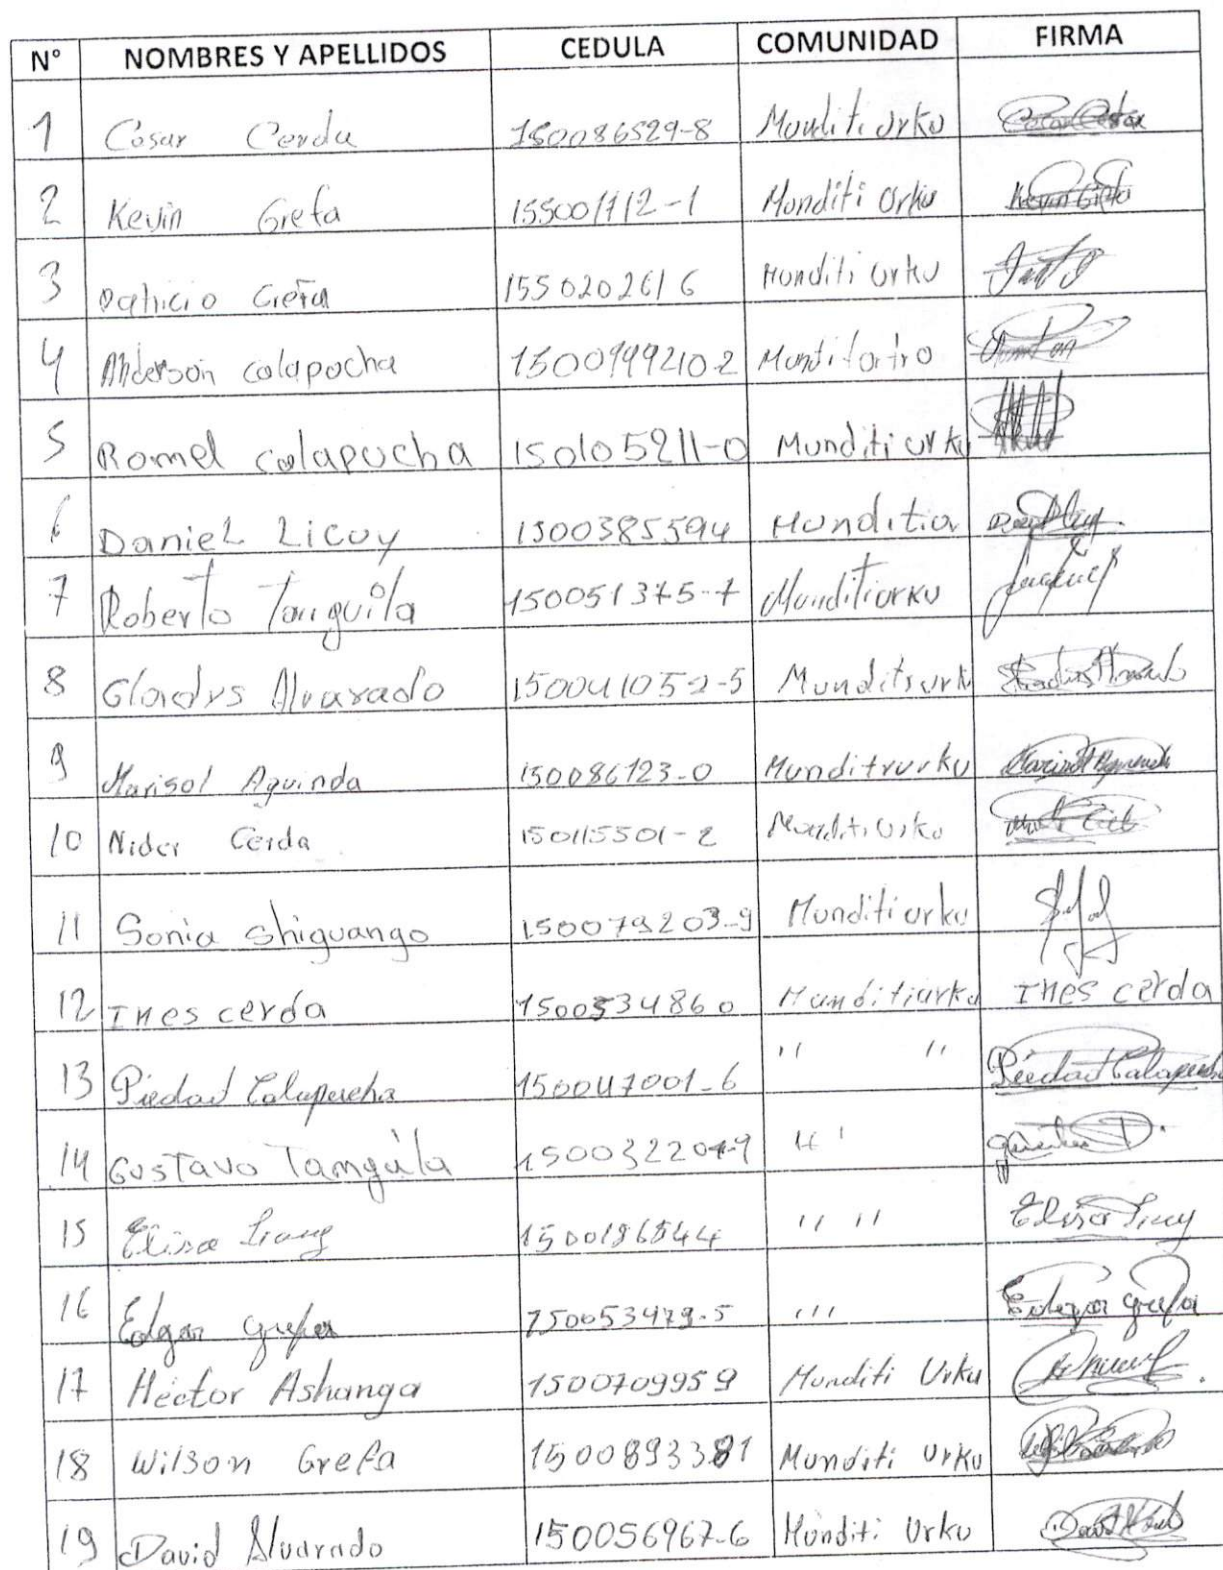 N° NOMBRES Y APELLIDOS CEDULA COMUNIDAD FIRMA
1 Cosar Cerda 150086529-8 Mondití Urku
2 Kevin Grefa 155001712-1 Monditi Orku Kevin Grefa
3 Patricio Grefa 1550202616 Monditi Urku
4 Anderson calapocha 1500999210-2
5 Romel calapucha 150105211-0 Munditi urku
6 Daniel Licuy 1500385594 Munditia
7 Roberto Tanguila 150051375-7 Munditiurku
8 Gladys Alvarado 150041052-5 Munditiurk
9 Marisol Aguinda 150086123-0 Munditiurku
10 Nider Cerda 150115501-2 Munditi Urku
11 Sonia Shiguango 150079203-9 Munditi urku
12 Ines cerda 1500534860 Munditiurku Ines cerda
13 Piedad Calapucha 150047001-6 " " Piedad Calapucha
14 Gustavo Tanguila "
15 Elisa Licuy 1500186544 " " Elisa Licuy
16 Edgar grefa 150053479-5 " Edgar grefa
17 Hector Ashanga 1500709959 Munditi Urku
18 Wilson Grefa 1500893381 Munditi Urku
19 David Alvarado 150056967-6 Munditi Urku